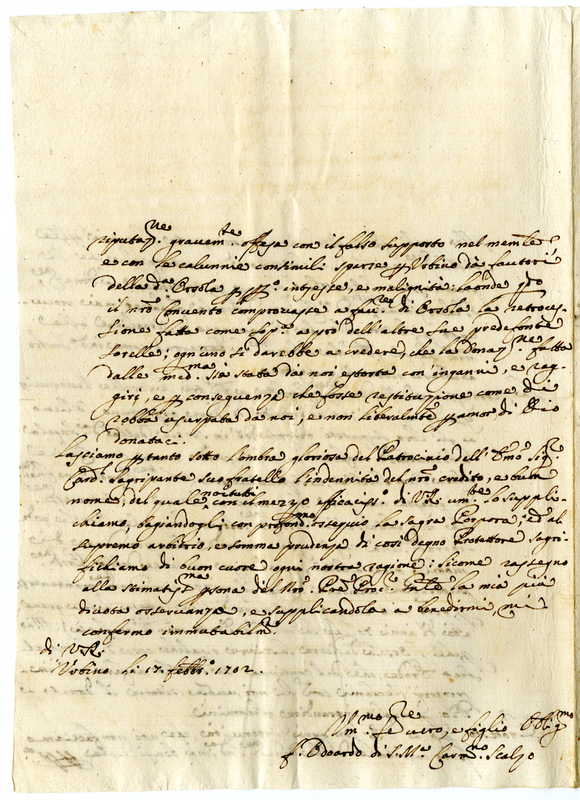 riputaz.ne gravem.te offesa con il falso supposto nel mem.le
e con le calunnie continuè sparse p Urbino da fautori
della d.a Orsola p interesse, e malignità: laonde
il nrō Convento comprovasse a fav.re di Orsola la retroces-
sione fatta come sop.a a prò dell'altre sue predefonte
sorelle; ogn'uno si darebbe a credere, che la Donaz.ne fatta
dalle med.ma sia stata da noi estorta con inganni, e rag-
giri, e p consequenza che fosse restituzione come di
robba usurpata da noi, e non liberalmte p amor di Dio
donataci.
Lasciamo p tanto sotto l'ombra gloriosa del Patrocinio dell' Em̄o Sig.r
Card. Sagripante suo fratello l'indennità del nrō credito, e buon
nome, del quale noi tutti con il mezzo efficaciss.o di V.R. um.te lo suppli-
chiamo, bagiandogli con profond.mo ossequio la Sagra Porpora; ed al
supremo arbitrio, e somma prudenza di così degno Protettore sagri-
fichiamo di buon cuore ogni nostra ragione: sicome rassegno
alla stimatis.ma psona del Nrō Prē Proc. la mia più
divota osservanza, e supplicandola a benedirmi, mi
confermo immutabilm.te
di V.R.
Urbino li 17. febbr.o 1702.
Um.mo servo, e figlio Obblig.mo
f. Edoardo di S. M.a Carm.no Scalzo